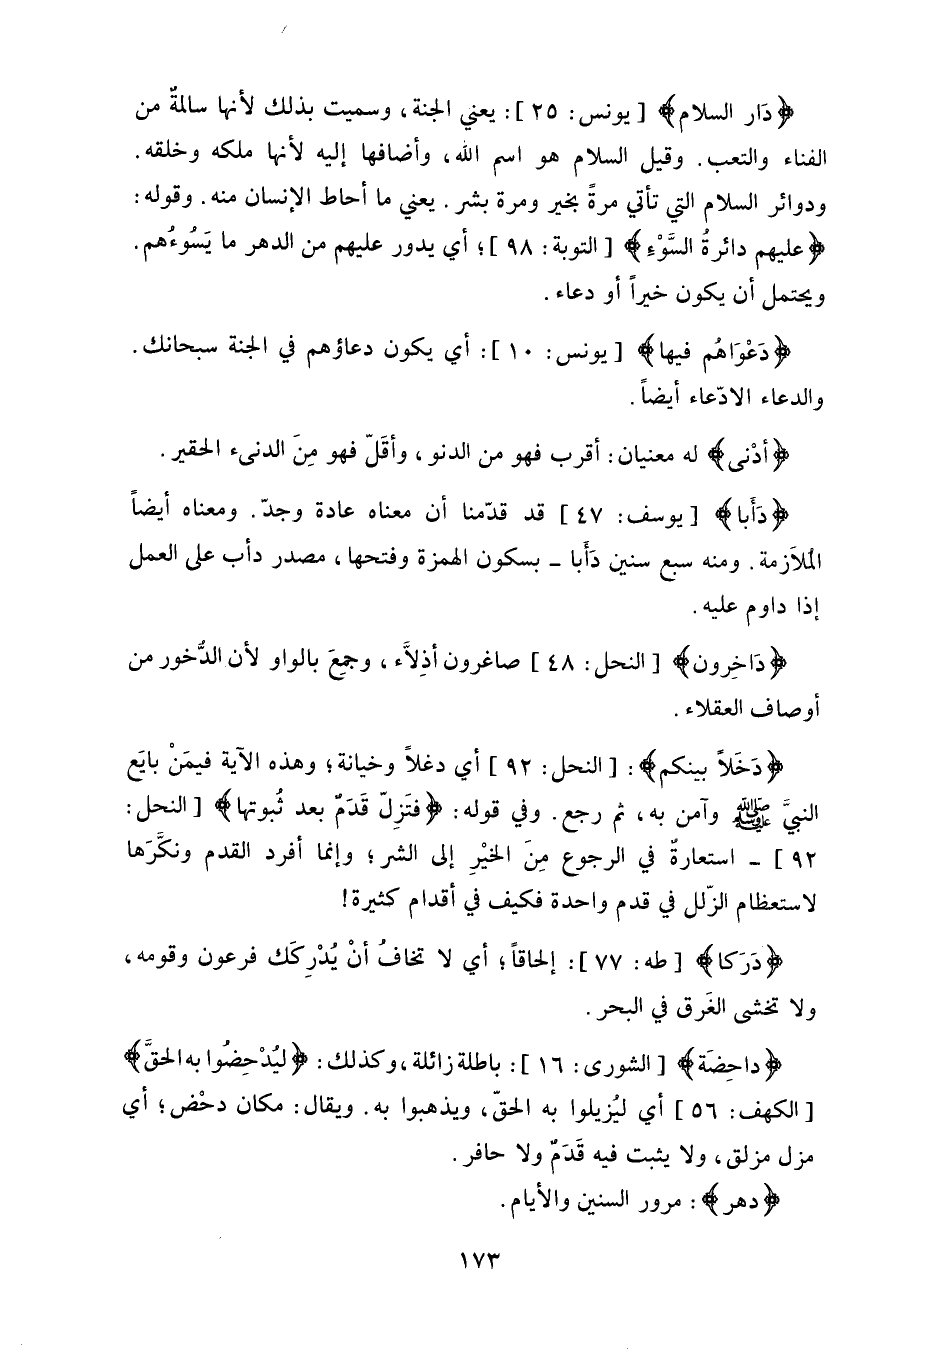 ﴿دَار السلام﴾ [يونس: ٢٥]: يعني الجنة، وسميت بذلك لأنها سالمةٌ من
الفناء والتعب. وقيل السلام هو اسم الله، وأضافها إليه لأنها ملكه وخلقه.
ودوائر السلام التي تأتي مرةً بخير ومرة بشر. يعني ما أحاط الإنسان منه. وقوله:
﴿عليهم دائرةُ السَّوْءِ﴾ [التوبة: ٩٨]؛ أي يدور عليهم من الدهر ما يَسُوءُهم.
ويحتمل أن يكون خيراً أو دعاء.
﴿دَعْوَاهُم فيها﴾ [يونس: ١٠]: أي يكون دعاؤهم في الجنة سبحانك.
والدعاء الادّعاء أيضاً.
﴿أدْنى﴾ له معنيان: أقرب فهو من الدنو، وأقَلّ فهو مِنَ الدنىء الحقير.
﴿دَأَبا﴾ [يوسف: ٤٧] قد قدّمنا أن معناه عادة وجدّ. ومعناه أيضاً
المُلاَزمة. ومنه سبع سنين دَأَبا ـ بسكون الهمزة وفتحها، مصدر دأب على العمل
إذا داوم عليه.
﴿دَاخِرون﴾ [النحل: ٤٨] صاغرون أذِلاَّء، وجمِعَ بالواو لأن الدُّخور من
أوصاف العقلاء.
﴿دَخَلاً بينكم﴾: [النحل: ٩٢] أي دغلاً وخيانة؛ وهذه الآية فيمَنْ بايَع
النبيَّ ﷺ وآمن به، ثم رجع. وفي قوله: ﴿فتَزِلّ قَدَمٌ بعد ثُبوتها﴾ [النحل:
٩٢] ـ استعارةٌ في الرجوع مِنَ الخيْرِ إلى الشر؛ وإنما أفرد القدم ونكَّرَها
لاستعظام الزّلل في قدم واحدة فكيف في أقدام كثيرة!
﴿دَرَكا﴾ [طه: ٧٧]: إلحاقاً؛ أي لا تخافُ أنْ يُدْرِكَك فرعون وقومه،
ولا تخشى الغَرق في البحر.
﴿داحِضَة﴾ [الشورى: ١٦]: باطلة زائلة، وكذلك: ﴿ليُدْحِضُوا به الحقَّ﴾
[الكهف: ٥٦] أي ليُزيلوا به الحقّ، ويذهبوا به. ويقال: مكان دحْض؛ أي
مزل مزلق، ولا يثبت فيه قَدَمٌ ولا حافر.
﴿دهر﴾: مرور السنين والأيام.
١٧٣